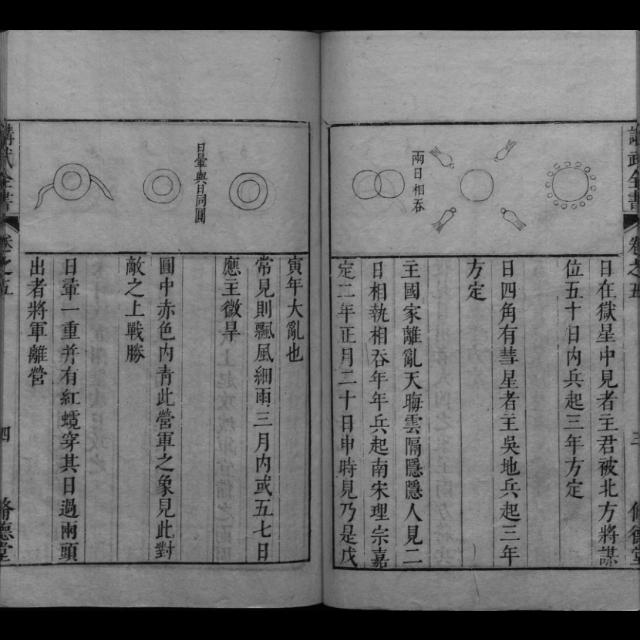 兩日相吞
日在獄星中見者主君被北方將謀
位五十日內兵起三年方定
日四角有彗星者主吳地兵起三年
方定
主國家離亂天晦雲隔隱隱人見二
日相執相吞年年兵起南宋理宗嘉
定二年正月二十日申時見乃是戊
日暈與日同圓
寅年大亂也
常見則飄風細雨三月內或五七日
應主微旱
圓中赤色內青此營軍之象見此對
敵之上戰勝
日暈一重旁有紅蜺穿其日過兩頭
出者將軍離營
四